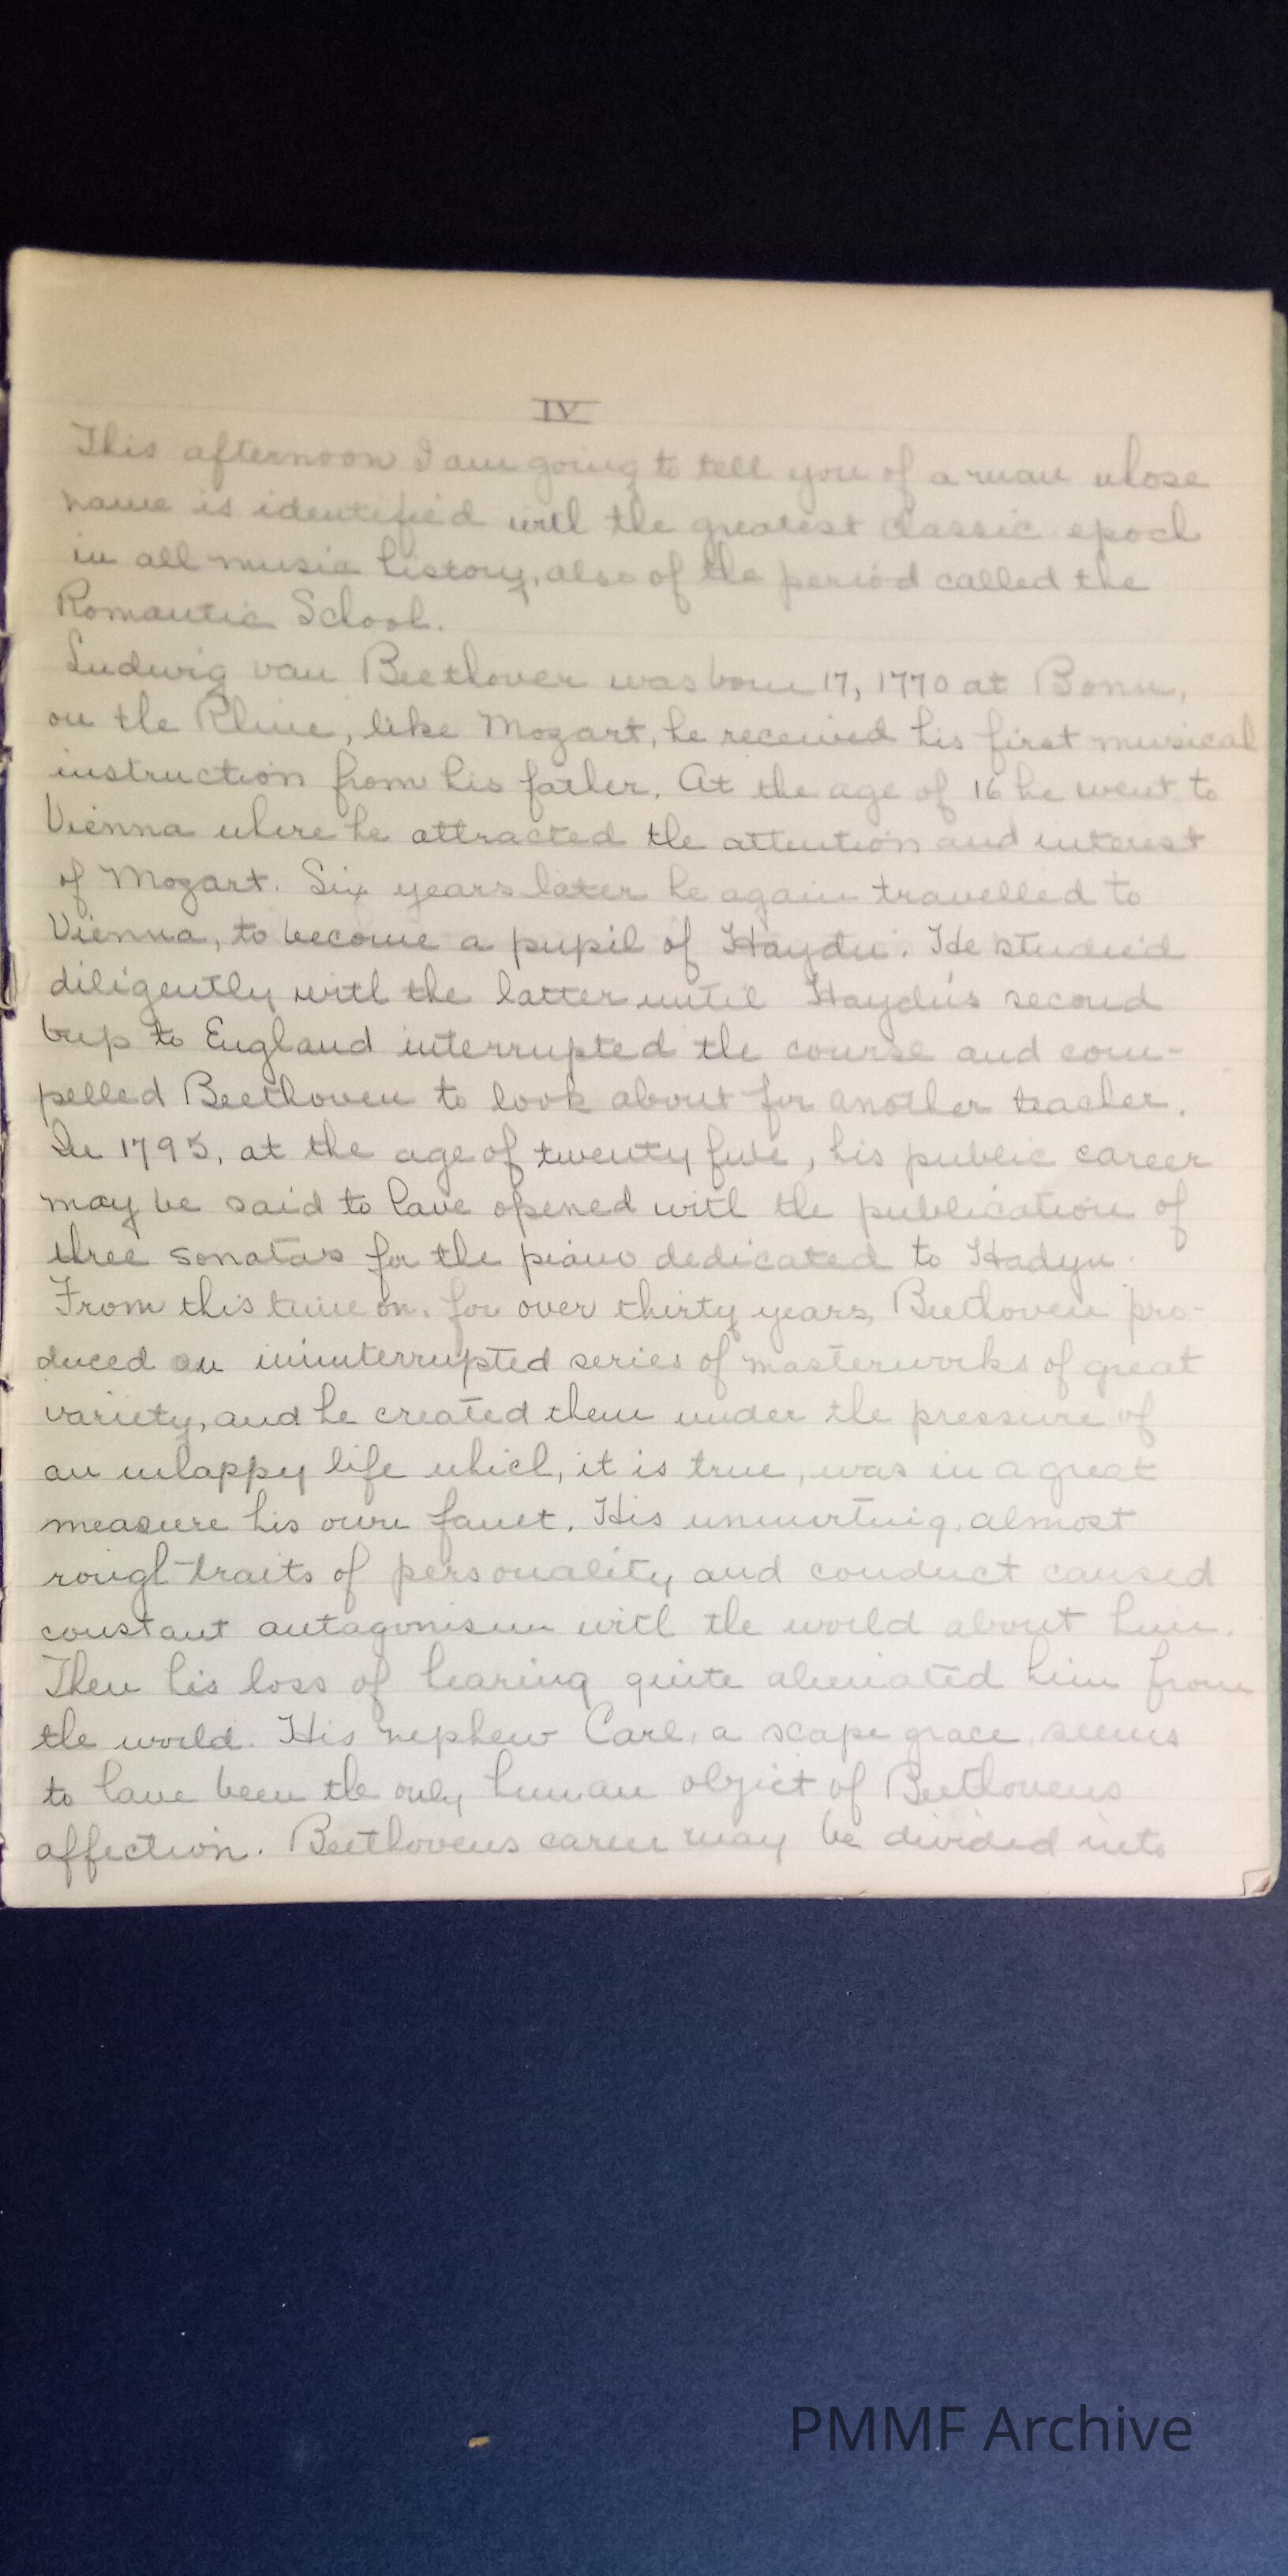 IV
This afternoon I am going to tell you of a man whose
name is identified with the greatest classic epoch
in all music history, also of the period called the
Romantic School.
Ludwig van Beethoven was born 17, 1770 at Bonn,
on the Rhine, like Mozart, he received his first musical
instruction from his father. At the age of 16 he went to
Vienna where he attracted the attention and interest
of Mozart. Six years later he again travelled to
Vienna, to become a pupil of Haydn. He studied
diligently with the latter until Haydn's second
trip to England interrupted the course and com-
pelled Beethoven to look about for another teacher.
In 1795, at the age of twenty five, his public career
may be said to have opened with the publication of
three sonatas for the piano dedicated to Hadyn.
From this time on, for over thirty years, Beethoven pro-
duced an uninterrupted series of masterworks of great
variety, and he created them under the pressure of
an unhappy life which, it is true, was in a great
measure his own fault. His almost
rough traits of personality and conduct caused
constant antagonism with the world about him.
Then his loss of hearing quite alienated him from
the world. His nephew Carl, a scape grace, seems
to have been the only human object of Beethovens
affection. Beethovens career may be divided into
PMMF Archive